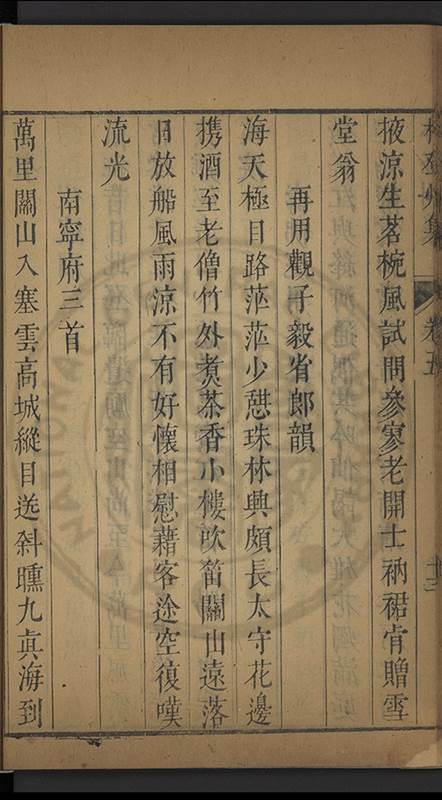 卷五
掖涼生茗椀風試問參寥老開士衲裙肯贈雪
堂翁
再用觀子毅省郎韻
海天極目路茫茫少憩珠林興頗長太守花邊
携酒至老僧竹外煑茶香小樓吹笛關山遠落
日放船風雨涼不有好懷相慰藉客途空復嘆
流光
南寧府三首
萬里關山入塞雲高城縱目送斜曛九真海到